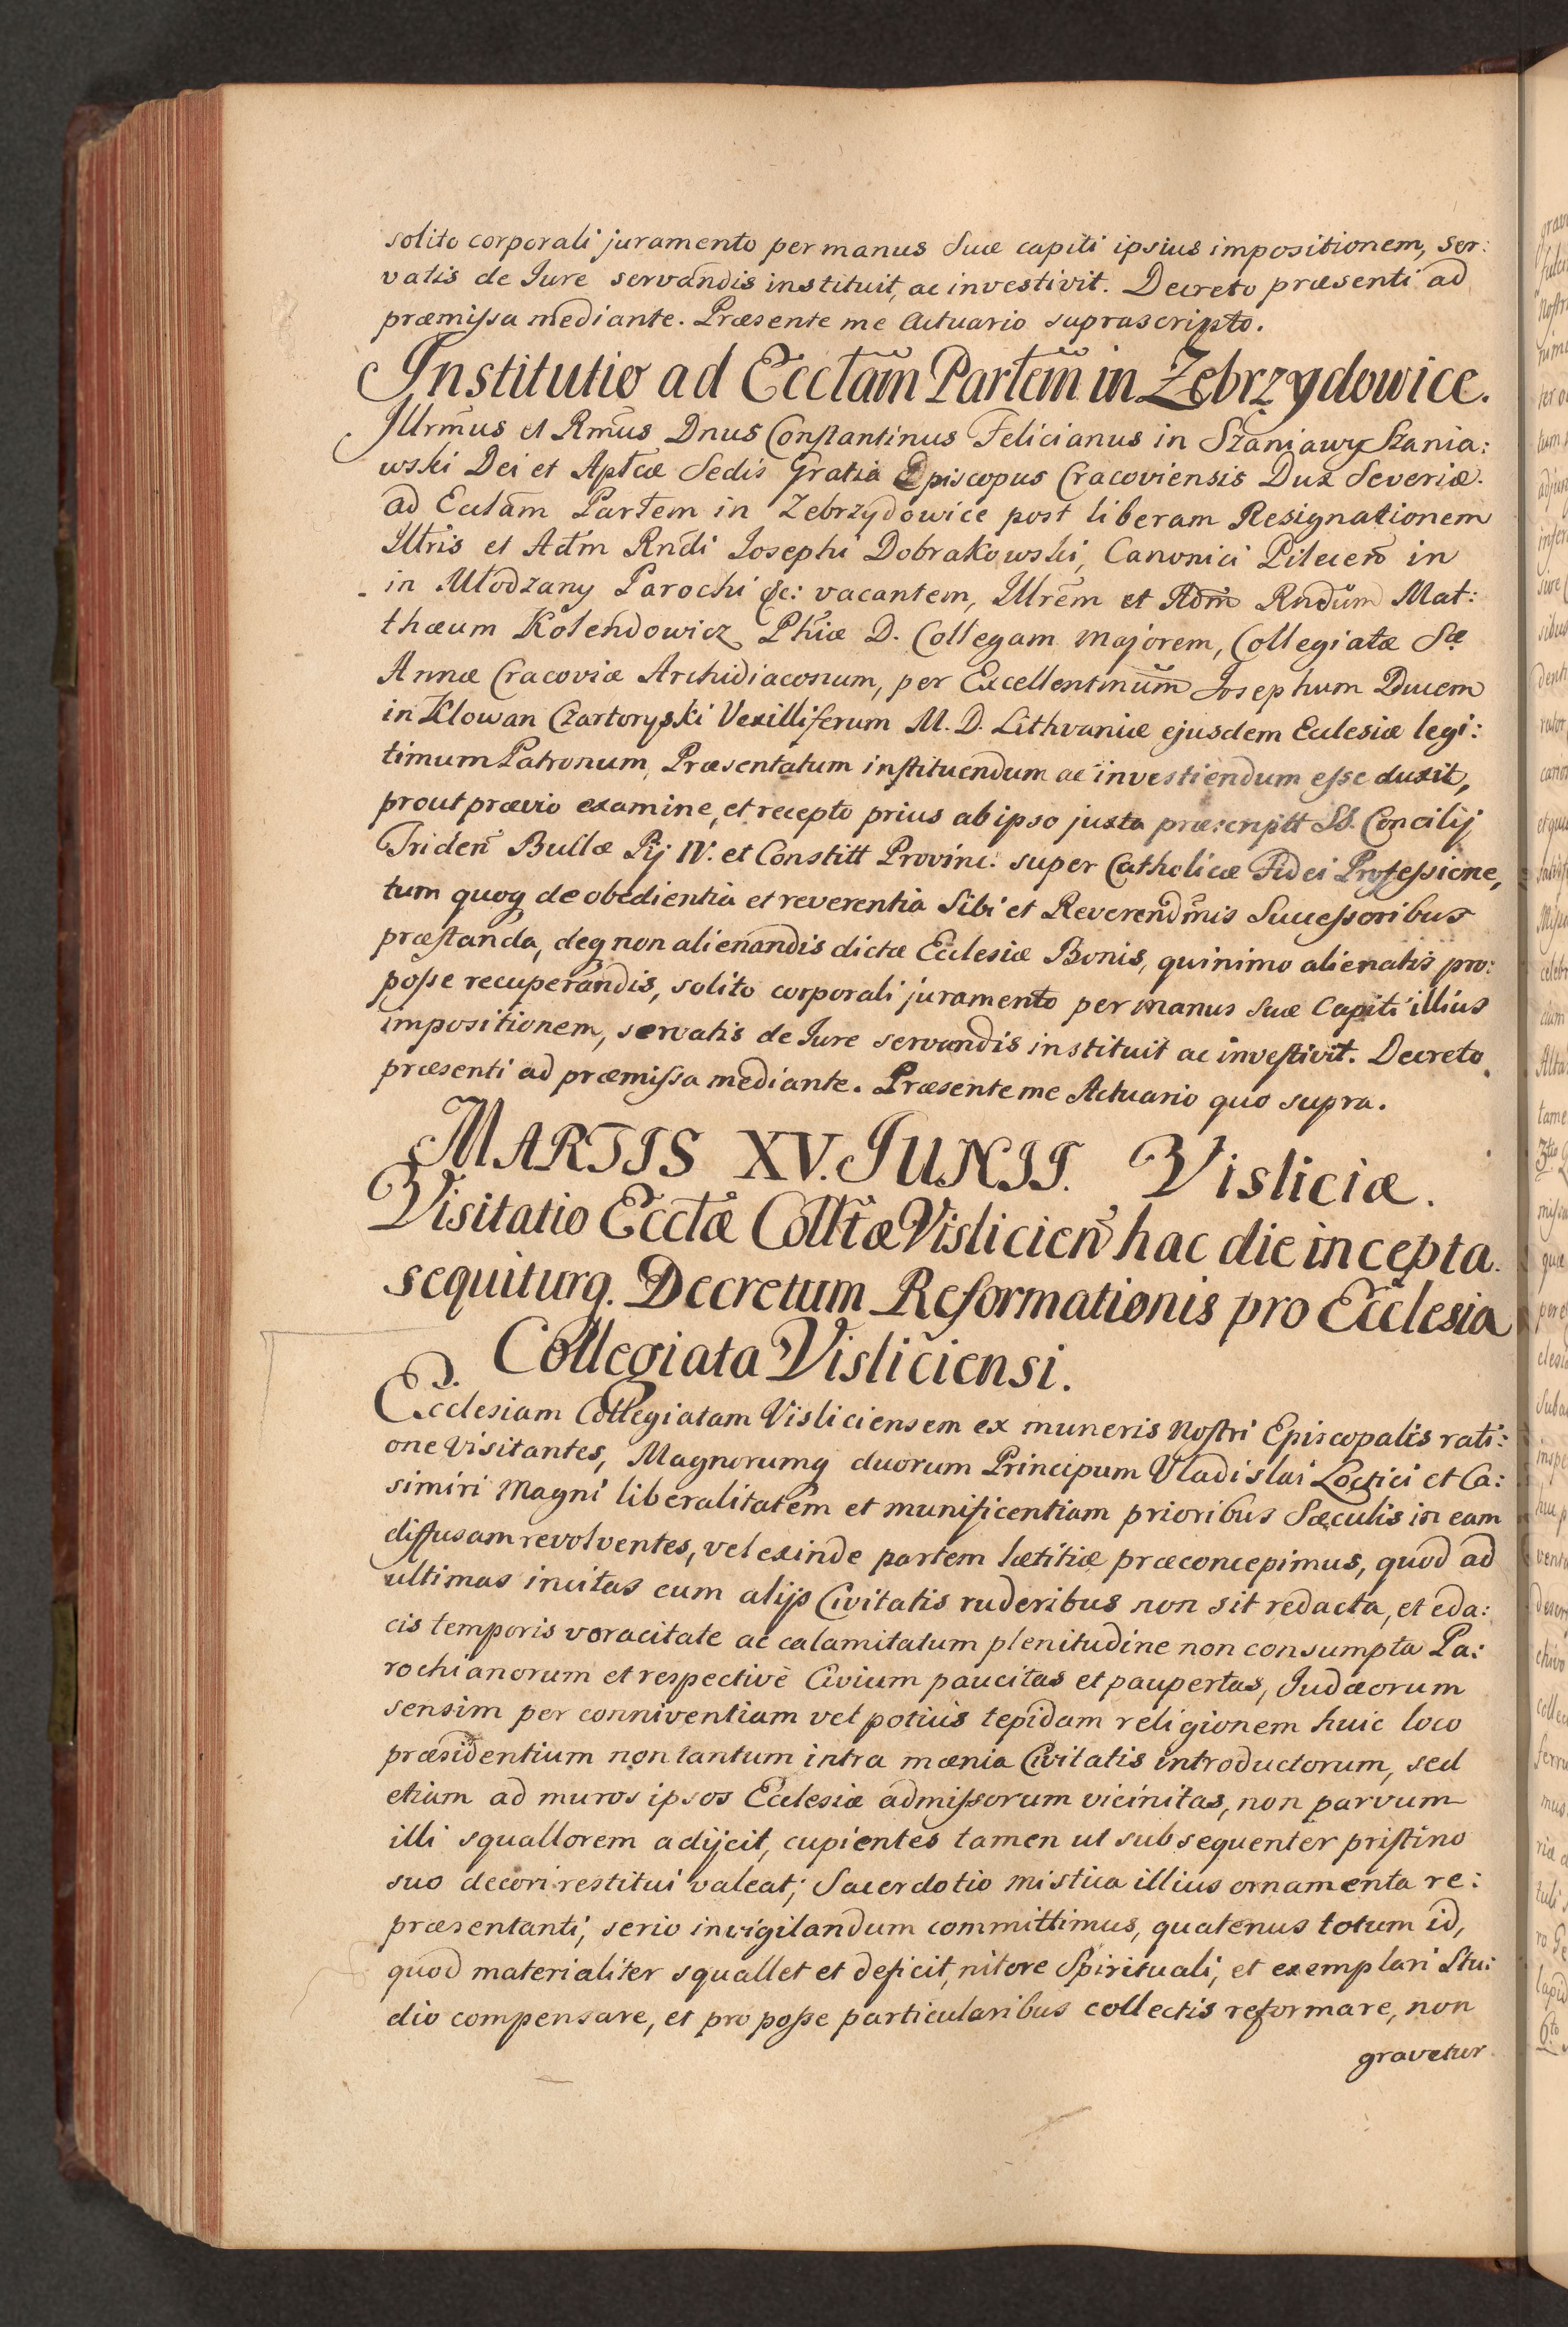 solito corporali juramento per manus Suæ capiti ipsius impositionem, ser:
vatis de Iure servandis instituit, ac investivit. Decreto præsenti ad
præmissa mediante. Præsente me Actuario suprascripto.
Institutio ad Ecctam̃ Partem̃ in Zebrzydowice.
Illrm̃us et Rm̃us Dnus Constantinus Felicianus in Szaniawy Szania:
wski Dei et Aptcæ Sedis Gratia Episcopus Cracoviensis Dux Severiæ.
ad Ecctam̃ Partem in Zebrzydowice post liberam Resignationem
Illris et Adm̃ Rndi Iosephi Dobrakowski, Canonici Pilecen̄ in
in Młodzany Parochi &c: vacantem, Illrem̃ et Adm̃ Rndum̃ Mat:
thæum Kolendowicz Phiæ D. Collegam majorem, Collegiatæ Sæ
Annæ Cracoviæ Archidiaconum, per Excellentm̃um Josephum Ducem
in Klowan Czartoryski Vexilliferum M. D. Lithvaniæ ejusdem Ecclesiæ legi:
timum Patronum, Præsentatum instituendum ac investiendum esse duxit,
prout prævio examine, et recepto prius ab ipso juxta præscriptt SS. Concilij
Triden̄ Bullæ Pij IV. et Constitt Provinc: super Catholicæ Fidei Professione,
tum quoq de obedientia et reverentia Sibi et Reverendm̃is Successoribus
præstanda, deq non alienandis dictæ Ecclesiæ Bonis, quinimo alienatis pro:
posse recuperandis, solito corporali juramento per manus Suæ Capiti illius
impositionem, servatis de Iure servandis instituit ac investivit. Decreto
præsenti ad præmissa mediante. Præsente me Actuario quo supra.
MARTIS XV. JUNII. Visliciæ.
Visitatio Ecctæ Colltæ Vislicien̄ hac die incepta.
sequiturq. Decretum Reformationis pro Ecclesia
Collegiata Visliciensi.
Ecclesiam Collegiatam Visliciensem ex muneris Nostri Episcopalis rati:
one Visitantes, Magnorumq duorum Principum Vladislai Loctici et Ca:
simiri Magni liberalitatem et munificentiam prioribus Sæculis in eam
diffusam revolventes, vel exinde partem lætitiæ præconcepimus, quod ad
ultimas incitas cum alijs Civitatis ruderibus non sit redacta, et eda:
cis temporis voracitate ac calamitatum plenitudine non consumpta Pa:
rochianorum et respectivè Civium paucitas et paupertas, Iudæorum
sensim per conniventiam vel potius tepidam religionem huic loco
præsidentium non tantum intra mænia Civitatis introductorum, sed
etiam ad muros ipsos Ecclesiæ admissorum vicinitas, non parvum
illi squallorem adijcit, cupientes tamen ut subsequenter pristino
suo decori restitui valeat; Sacerdotio mistica illius ornamenta re:
præsentanti, serio invigilandum committimus, quatenus totum id,
quod materialiter squallet et deficit, nitore Spirituali, et exemplari Stu:
dio compensare, et pro posse particularibus collectis reformare, non
gravetur